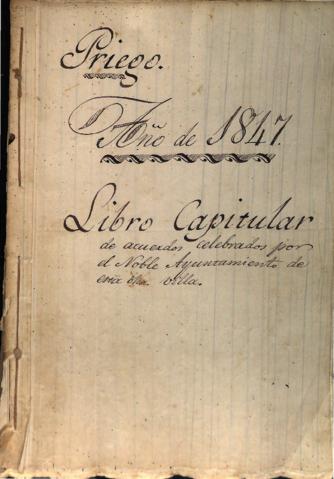 Priego.
Año de 1847.
Libro Capitular
de acuerdos celebrados por
el Noble Ayuntamiento de
esta villa.